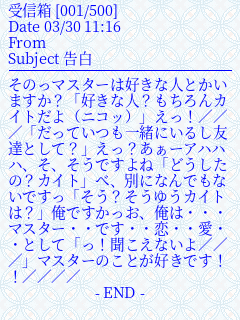 受信箱 [001/500]
Date 03/30 11:16
From
Subject 告白
そのっマスターは好きな人とかい
ますか？「好きな人？もちろんカ
イトだよ（ニコッ）」えっ！／／
／「だっていつも一緒にいるし友
達として？」えっ？あぁーアハハ
ハ、そ、そうですよね「どうした
の？カイト」べ、別になんでもな
いですっ「そう？そうゆうカイト
は？」俺ですかっお、俺は・・・
マスター・・です・・恋・・愛・
・として「っ！聞こえないよ／／
／」マスターのことが好きです！
！／／／／
- END -